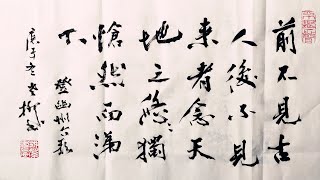 前不见古
人后不见
来者念天
地之悠獨
怆然而涕
下
登幽州台歌
庚子冬